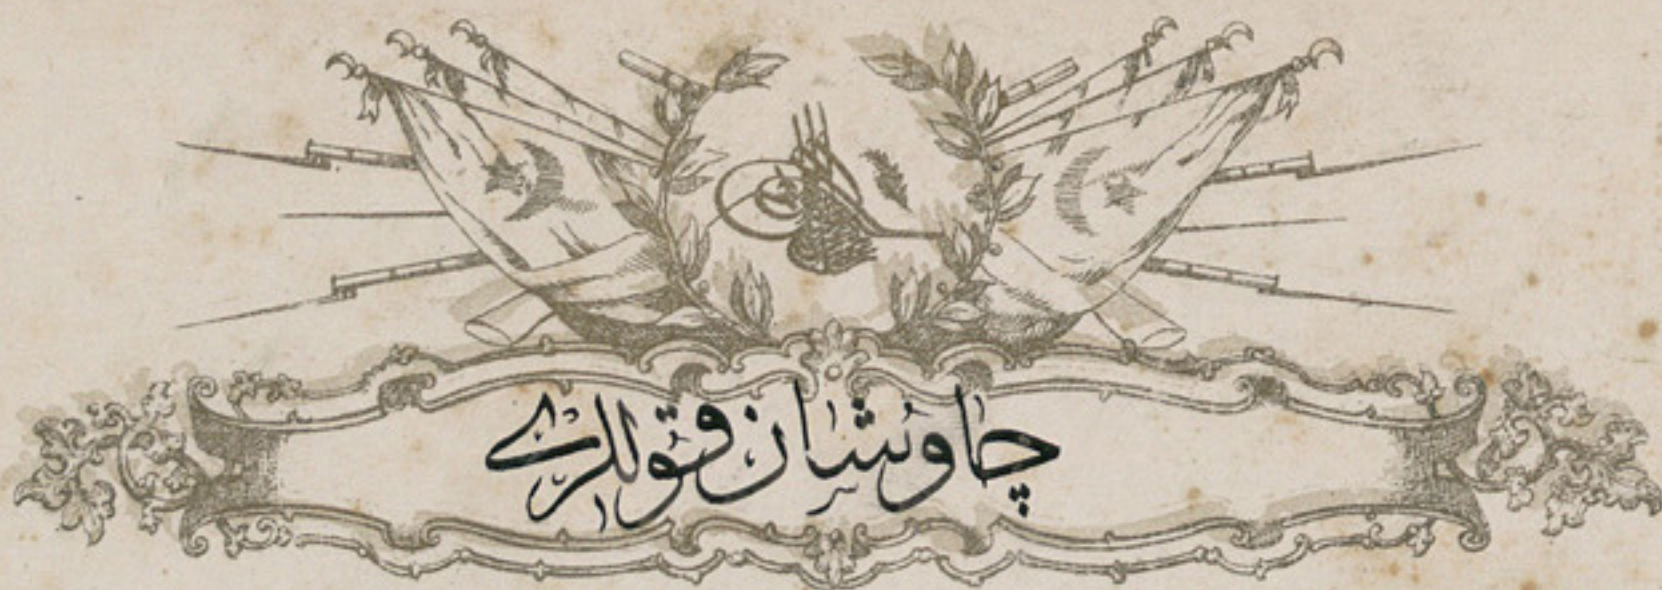 چاوشان قوللری